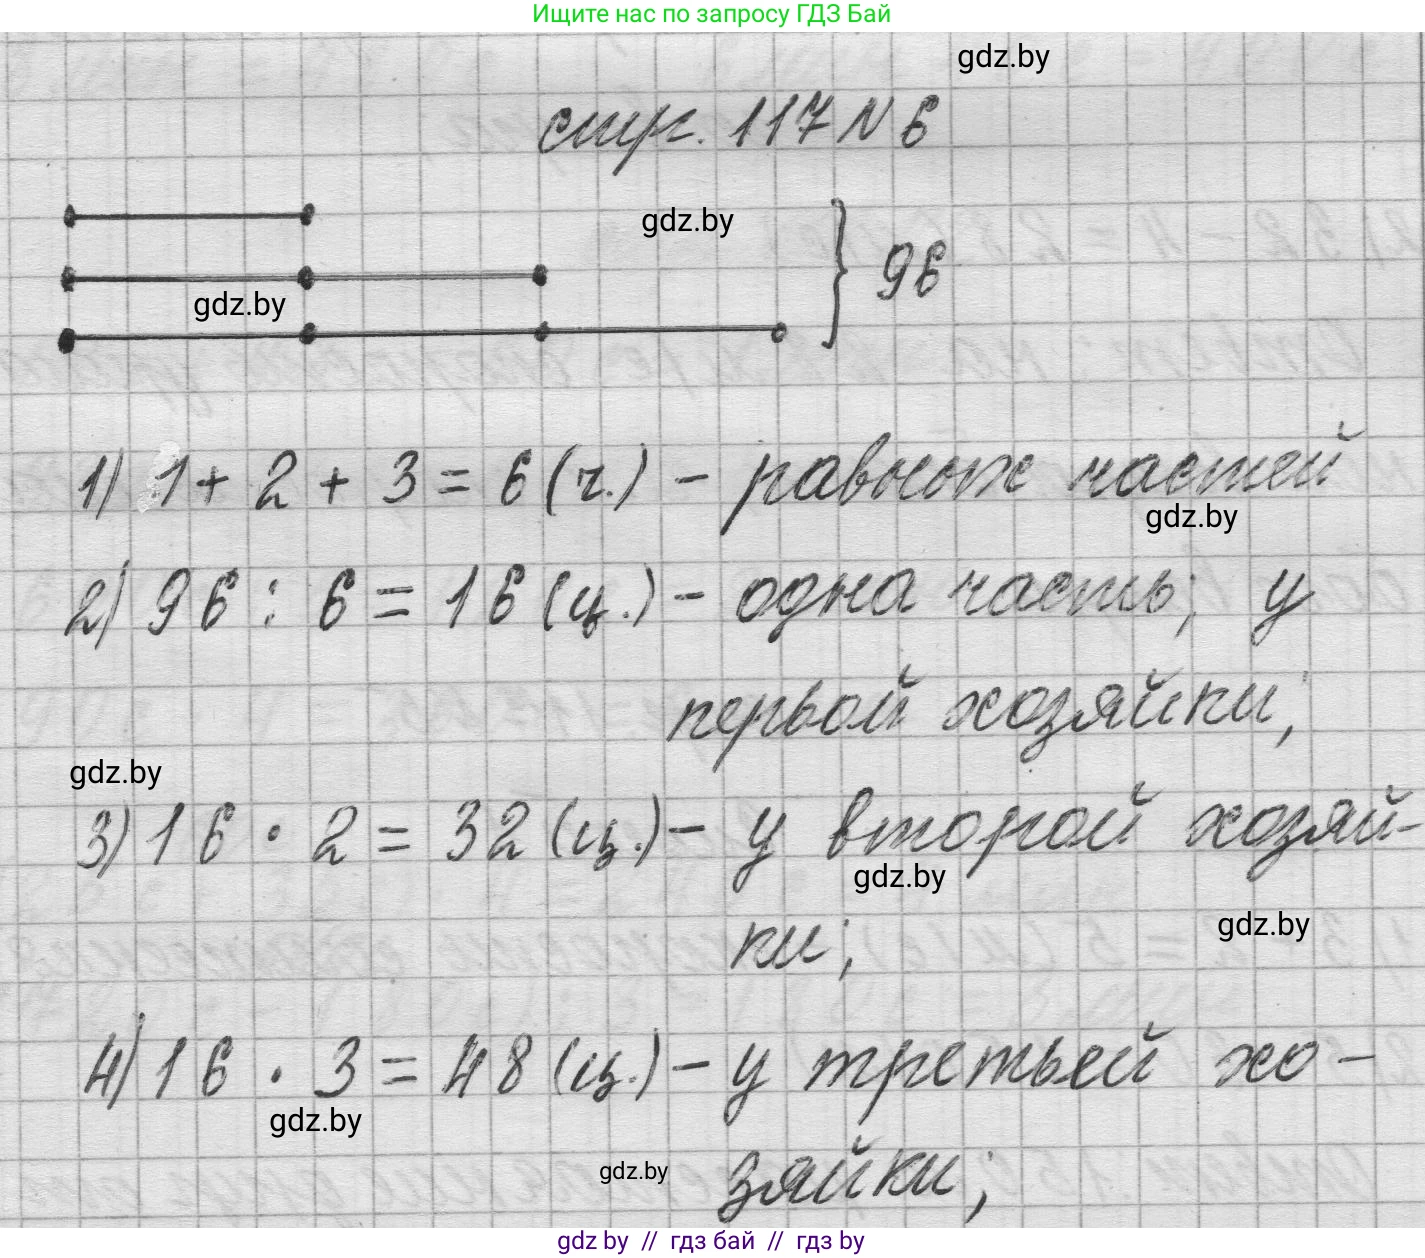 Ищите нас по запросу ГДЗ Бай
gdz.by
стр. 117 № 6
gdz.by
} 96
gdz.by
1) 1 + 2 + 3 = 6 (ч.) - равных частей
gdz.by
2) 96 : 6 = 16 (ц.) - одна часть; у
первой хозяйки;
gdz.by
3) 16 · 2 = 32 (ц.) - у второй хозяй-
gdz.by
gdz.by
ки;
4) 16 · 3 = 48 (ц.) - у третьей хо-
gdz.by
gdz.by
зяйки;
gdz by // гдз бай // гдз by